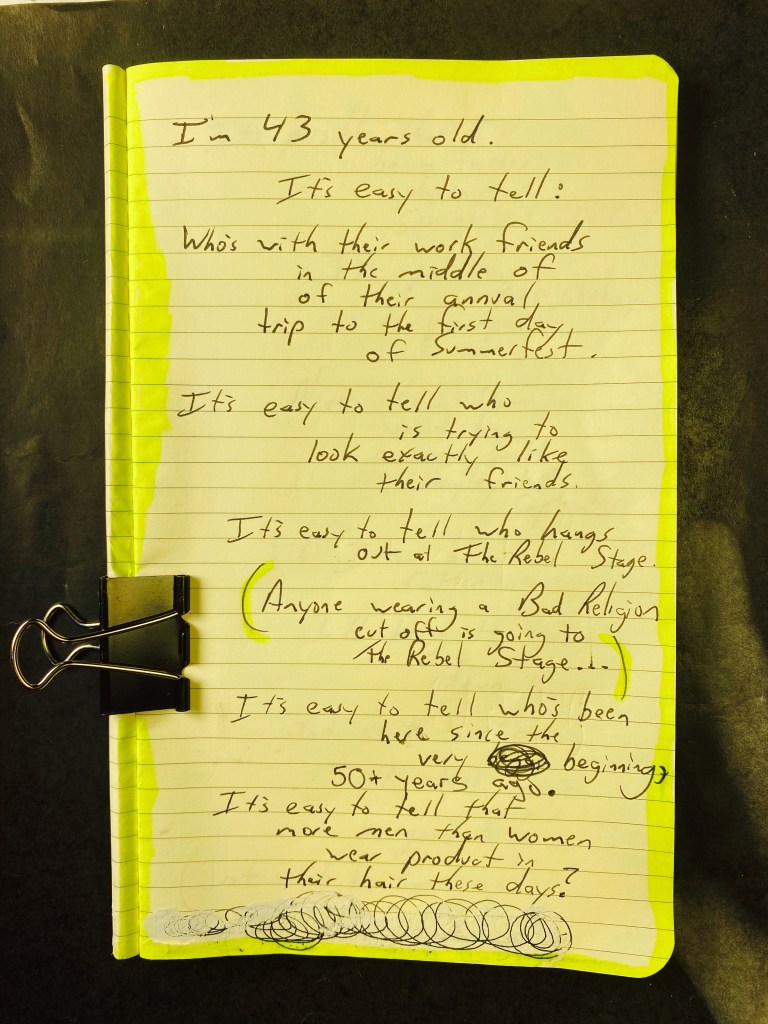 I'm 43 years old.
It's easy to tell:
Who's with their work friends
in the middle of
of their annual
trip to the first day
of Summerfest.
It's easy to tell who
is trying to
look exactly like
their friends.
It's easy to tell who hangs
out at The Rebel Stage.
(Anyone wearing a Bad Religion
cut off is going to
the Rebel Stage...)
It's easy to tell who's been
here since the
very beginning,
50+ years ago.
It's easy to tell that
more men than women
wear product in
their hair these days?